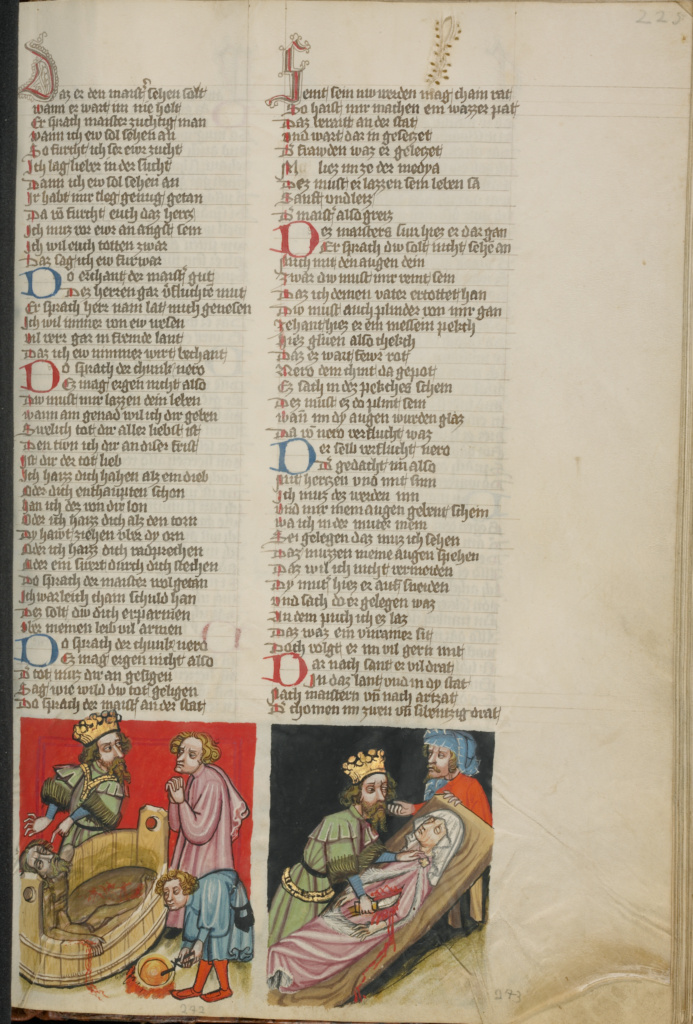 Daz er den maist͛ sehen solt
wann er wart im nie holt
Er sprach maister zuchtig man
wann ich ew sol sehen an
So furcht ich ser ewr zucht
Ich lag lieber in der sucht
Dann ich ew sol sehen an
Ir habt mir clog genug getan
Da vo furcht euch daz hercz
Ich muz vor ewr an angst sein
Ich wil euch totten zwar
Daz sag ich ew furwar
Do erchant der maist͛ gut
Dez herren gar v͛fluchte mut
Er sprach herr nam lat mich genesen
Ich wil immer von ew wesen
vil verr gar in fremde lant
Daz ich ew nimmer wirt bechant
Do sprach der chunik nero
Ez mag ergen nicht also
Dw must mir lazzen dein leben
wann am genad wil ich dir geben
Swelich tot dir aller liebst ist
Den twn ich dir an diser frist
Ist dir der tot lieb
Ich haizz dich hahen alz ein dieb
Oder dich enthaupten schon
Dan ich dez von dir lon
Oder ich haizz dich alz den torn
Dy hawt ziehen vber dy orn
Oder ich haizz dich radprechen
Oder ein swert durch dich stechen
Do sprach der maister wolgetan
Ich warleich cham schuld han
Dez solt dw dich erparmen
vber meinen leib vil armen
Do sprach der chunik nero
Ez mag ergen nicht also
D͛ tot muz dir an gesigen
Sag wie wild dw tot geligen
Do sprach der maist͛ an der stat
Semt sein nw werden mag cham rat
So haist mir machen ein wazzer pat
Daz berait an der stat
vnd wart dar in gesetzet
D͛ frawden waz er geletzet
liez im ze der medya
Dez must er lazzen sein leben sa
Sanft vnd leiz
D͛ maist͛ also greiz
Dez maisters sun hiez er dar gan
Er sprach dw solt nicht sehen an
Mich mit den augen dein
Zwar dw must mir veint sein
Daz ich deinen vater ertottet han
Dw must auch plinder von mir gan
Zehant hiez er ein messein pekch
Hiez gluen also chekch
Daz ez wart fewr rot
Nero dem chint da gepot
Ez sach in dez pekches schein
Dez must ez do plint sein
wann im dy augen wurden glaz
Da vo nero verflucht waz
Der selb verflucht nero
D͛ gedacht im also
Mit herczen vnd mit sinn
Ich muz dez werden inn
vnd mir mein augen gebent schein
wa ich in der muter mein
Sei gelegen daz muz ich sehen
Daz muzzen meine augen spehen
Daz wil ich nicht vermeiden
Dy mut͛ hiez er auf sneiden
vnd sach do er gelegen waz
An dem puch ich ez laz
Daz waz ein vnramer sit
Doch volgt er im vil gern mit
Dar nach sant er vil drat
In daz lant vnd in dy stat
Nach maistern vn nach artzat
D͛ chomen im zwen vn sibentzig drat
225
242
243